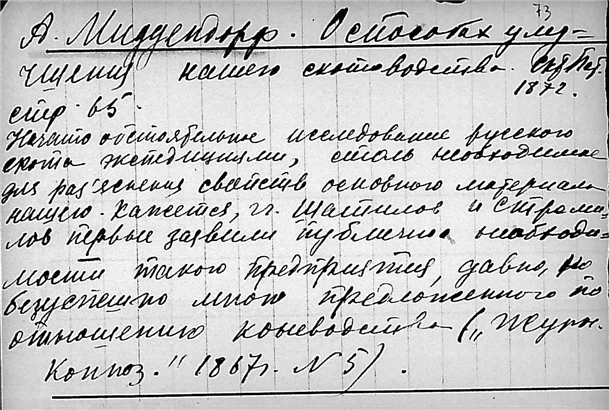 73
А. Миддендорф. О способах улу-
чщения нашего скотоводства. Скт Пет.
1872.
стр. 65.
Начато обстоятельное исследование русского
скота экспедициями, столь необходимое
для раз'яснения свойств основного материала
нашего. Кажется, гг. Шатилов и Стреми-
лов первые заявили публично необходи-
мости такого предприятия, давно, но
безуспешно мною предложенного по
отношению коневодства („Журн.
Конноз." 1867г. N 5).